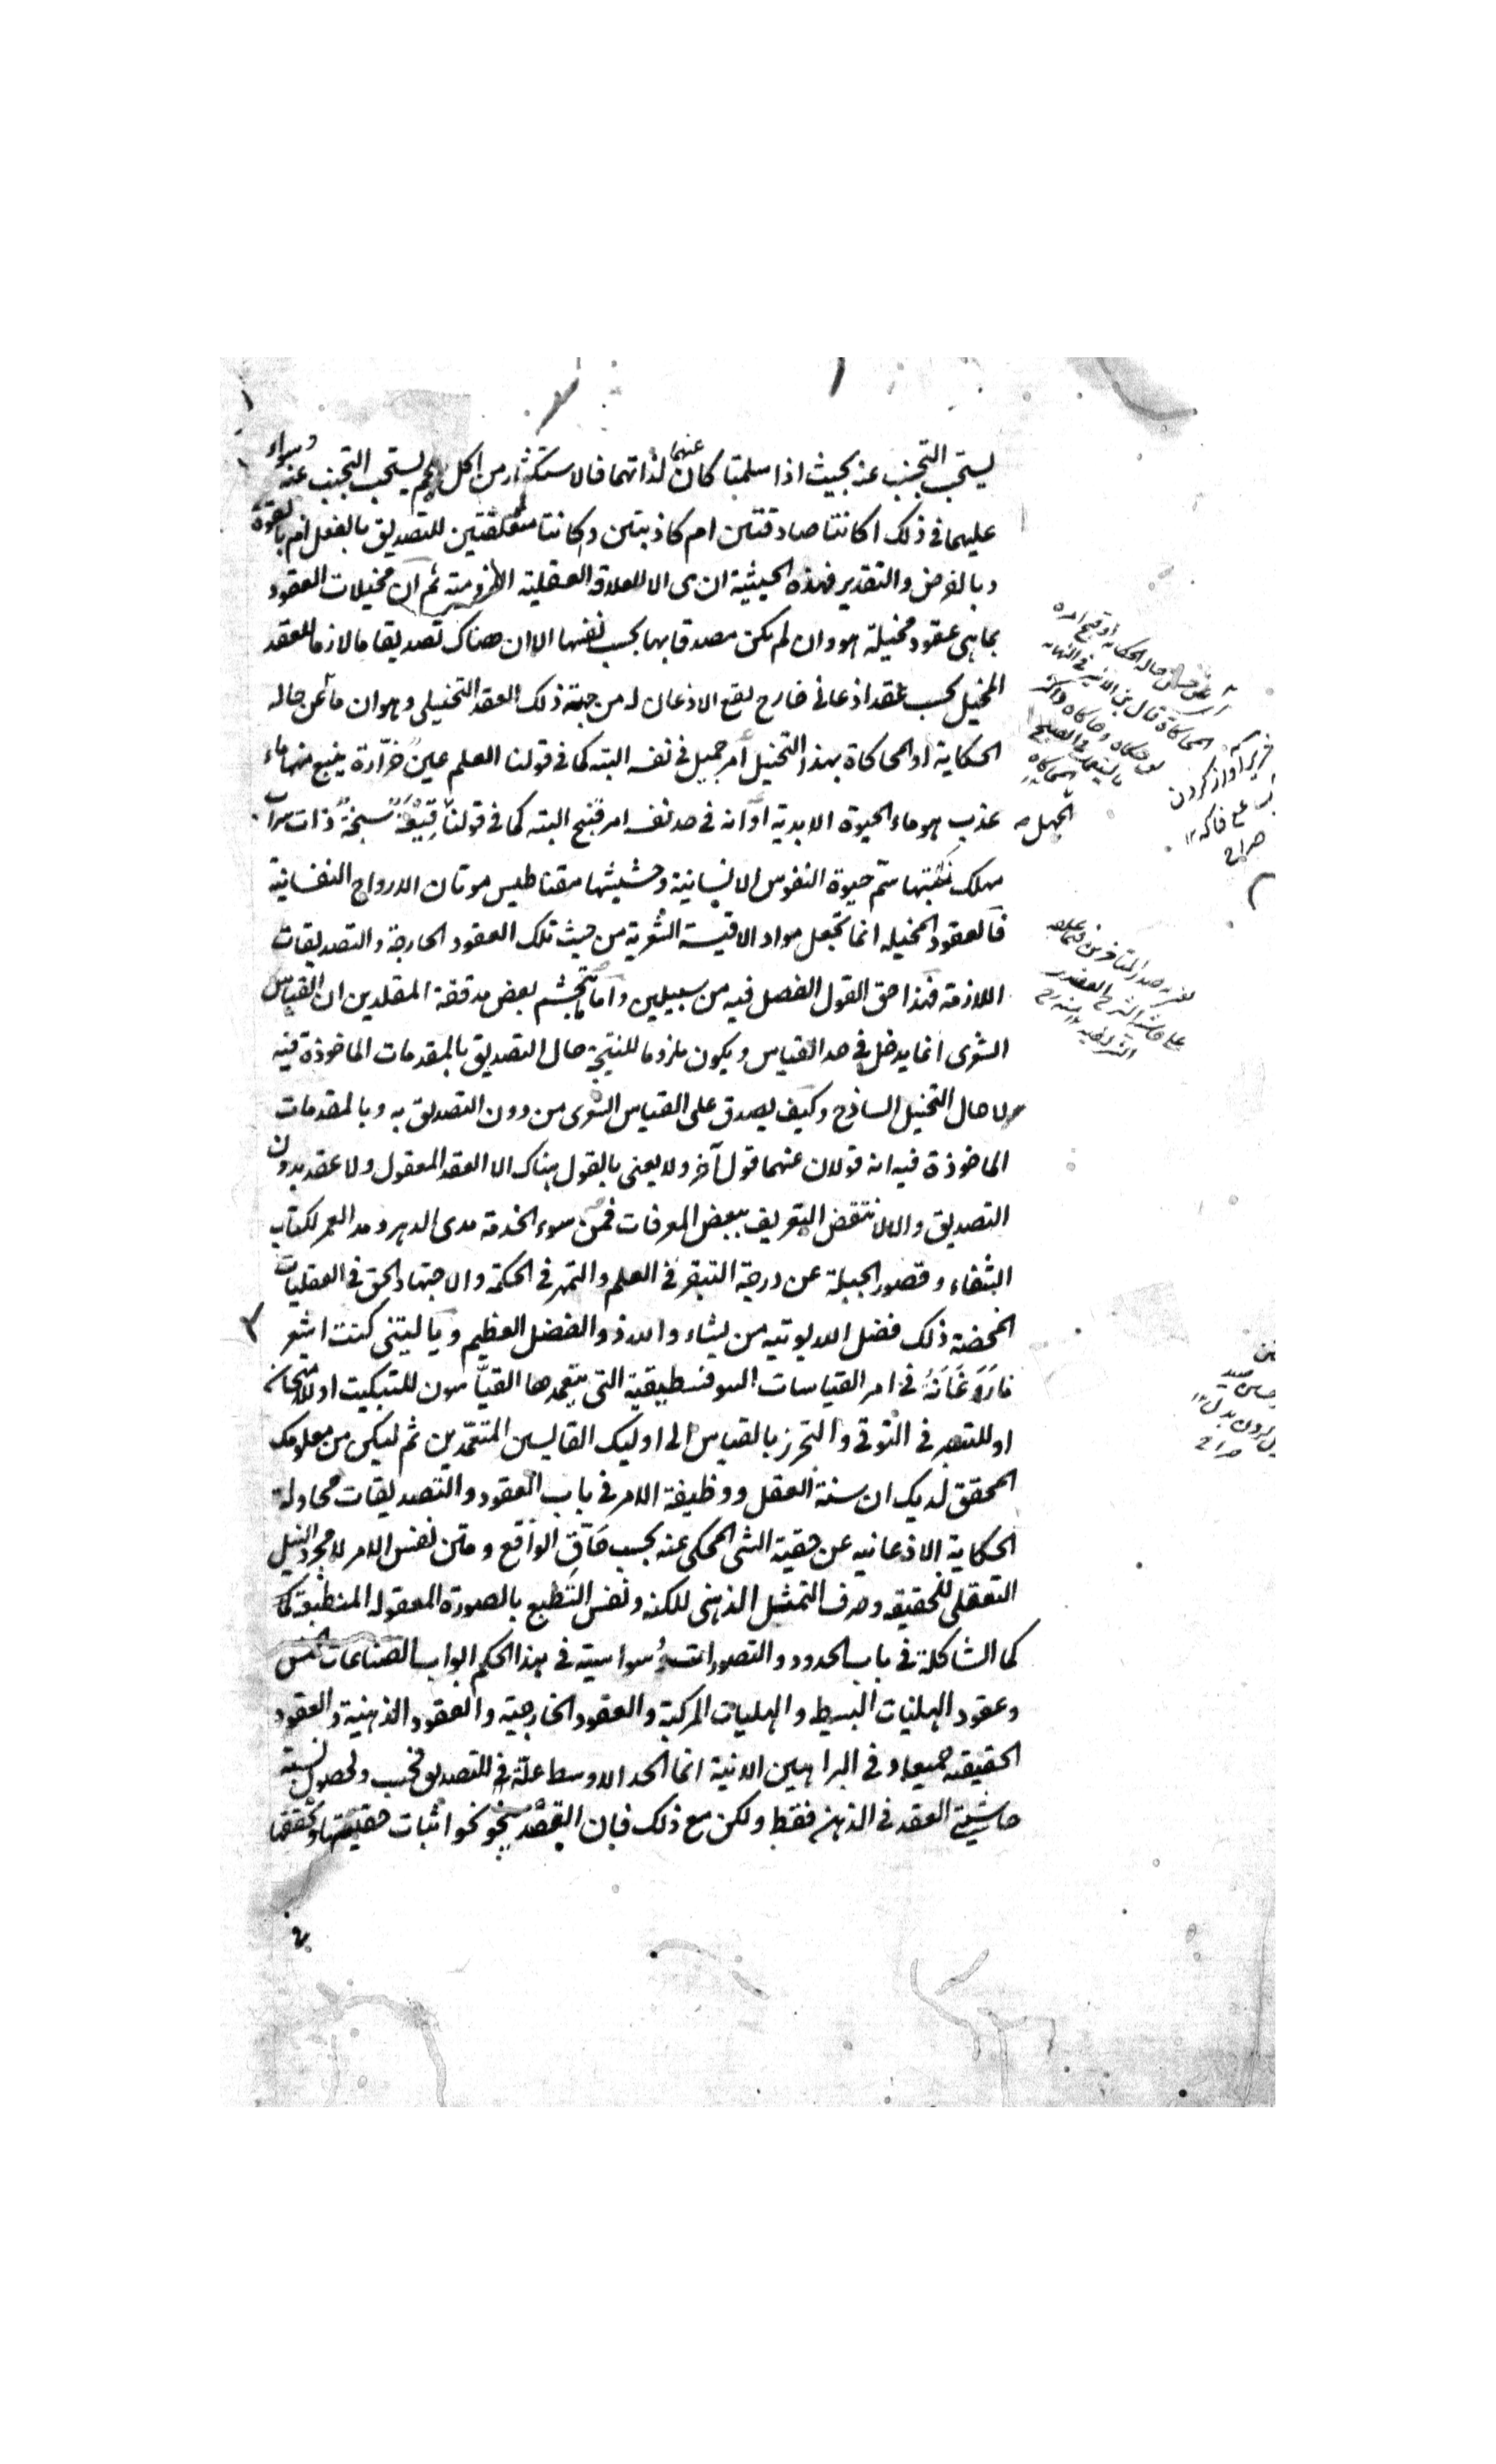 يستحب التجنب عنه بحيث اذا سلمتا كان عنهما لذاتهما فالاستكثار من اكل يستحب التجنب عنه وسواء
عليهما فى ذلك اكانتا صادقتين ام كاذبتين وكانتا متعلقتين للتصديق بالفعل ام بالقوة
وبالفرض والتقدير فهذه الحيثية ان هى الا للعلاقة العقلية اللزومية ثم ان مخيلات العقود
بما هى عقود مخيلة هو وان لم يكن مصدقا بها بحسب نفسها الا ان هناك تصديقا ما لازما للعقد
المخيل بحسب عقد اذعانى خارج يقع الاذعان له من جهة ذلك العقد التخييلى وهو ان ما عن حاله
الحكاية او المحاكاة بهذا التخييل امر جميل فى نفسه البته كما فى قولنا العلم عين خرّارة ينبع منها ماء
عذب هو ماء الحيوة الابدية او انه فى حد نفسه امر قبيح البته كما فى قولنا الجهل قيعة سبخة ذات سراب
مهلك نقبتها سم حيوة النفوس الانسانية وحشيشها مقناطيس موتان الارواح النفسانية
فالعقود المخيله انما تجعل مواد الاقيسة الشعرية من حيث تلك العقود الخارجة والتصديقات
اللازمة فهذا حق القول الفصل فيه من سبيلين واما تجشم بعض مدققة المقلدين ان القياس
الشعرى انما يدخل فى حد القياس ويكون ملزوما للنتيجة حال التصديق بالمقدمات الماخوذة فيه
لا حال التخييل الساذج وكيف يصدق على القياس الشعرى من دون التصديق به وبالمقدمات
الماخوذة فيه انه قولان عنهما قول آخر ولا يعنى بالقول هناك الا العقد المعقول ولا عقد بدون
التصديق والا لانتقض التعريف ببعض المعرفات فمن سوء الخدمة مدى الدهر ومد العمر لكتاب
الشفاء وقصور الجبلة عن درجة التبقر فى العلم والتمهر فى الحكمة والاجتهاد الحق فى العقليات
المحضة ذلك فضل الله يوتيه من يشاء والله ذو الفضل العظيم ويا ليتنى كنت اشعر
ما روغانه فى امر القياسات السوفسطيقية التى يتعمدها القيّاسون للتبكيت او للامتحان
او للتبصر فى التوقى والتحرز بالقياس الى اوليك القايسين المتعمّدين ثم ليكن من معلومك
المحقق لديك ان سنة العقل ووظيفة الامر فى باب العقود والتصديقات محاولة
الحكاية الاذعانيه عن حقية الشى المحكى عنه بحسب حاقّ الواقع ومتن نفس الامر لا مجرد النيل
التعقلى للحقيقه وصرف التمثل الذهنى للكنه ونفس التطبع بالصورة المعقوله المنطبقة
كما الشاكلة فى باب الحدود والتصورات سواسية فى هذا الحكم ابواب الصناعات الخمس
وعقود الهليات البسيطه والهليات المركبة والعقود الخارجية والعقود الذهنية والعقود
الحقيقيه جميعا وفى البراهين الانية انما الحد الاوسط علة فى للتصديق فحسب ولحصول نسبة
حاشيتى العقد فى الذهن فقط ولكن مع ذلك فان القصد نحو اثبات حقيقتها وتحققها
الجهل
المحاكاة قال ابن الاثير فى النهاية
خرير آواز كردن
صراح
صراح